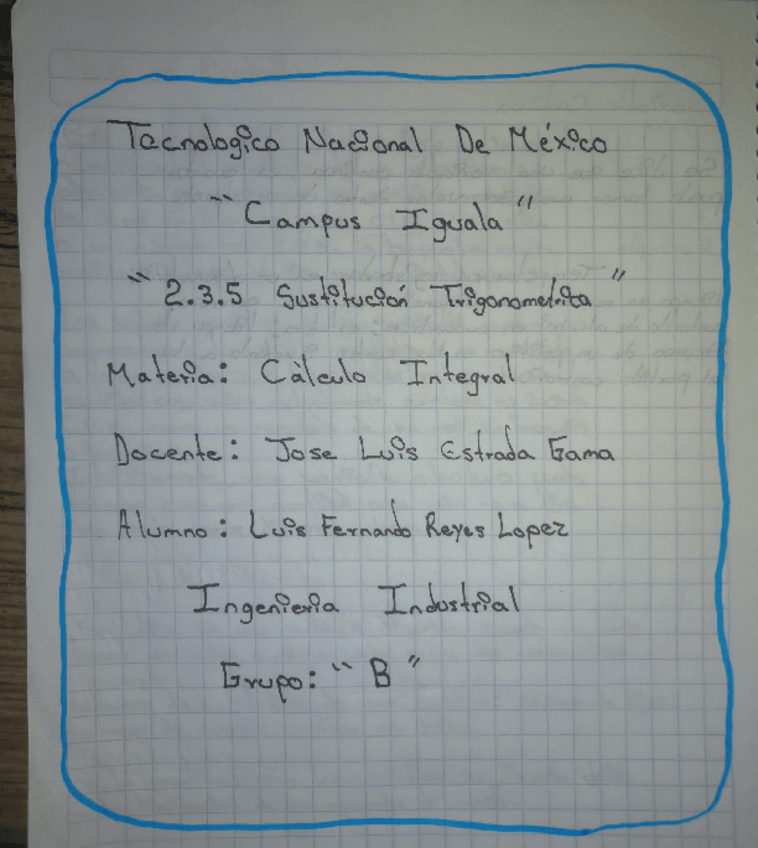 Tecnologico Nacional De México
"Campus Iguala"
"2.3.5 Sustitución Trigonometrica"
Materia: Càlculo Integral
Docente: Jose Luis Estrada Gama
Alumno: Luis Fernando Reyes Lopez
Ingenieria Industrial
Grupo: "B"